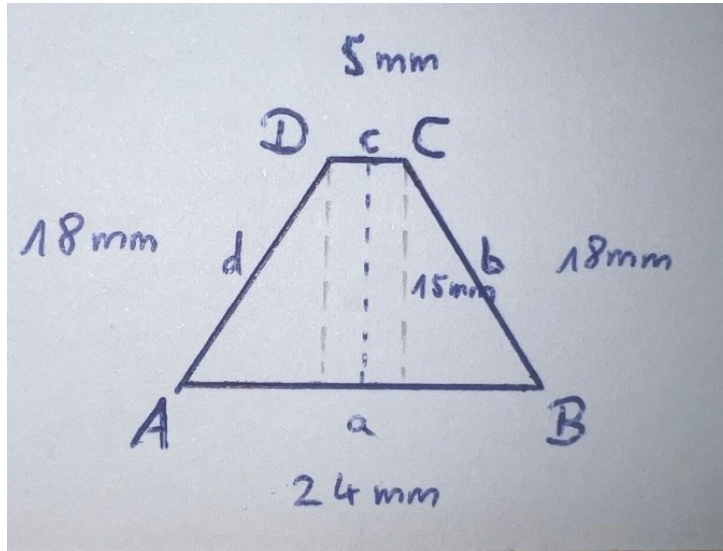 5 mm
D c C
18 mm d b 18 mm
15 mm
A a B
24 mm